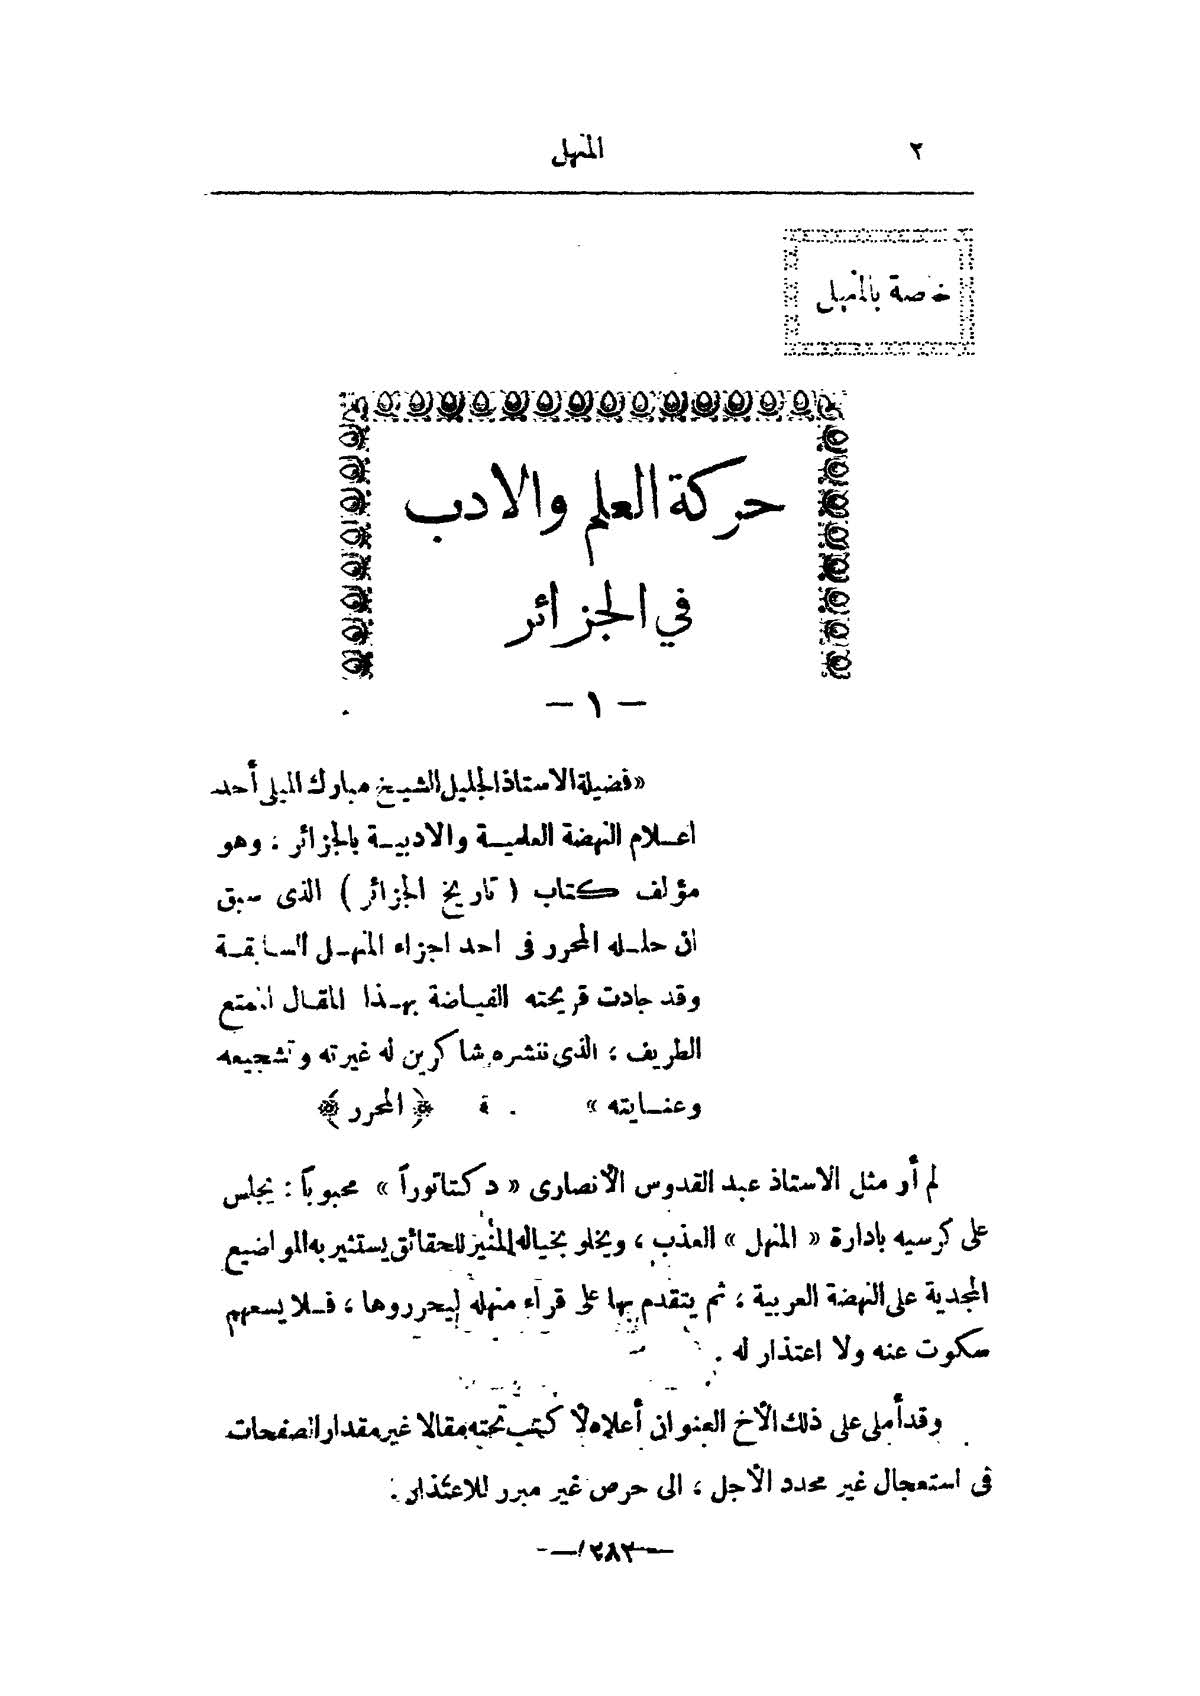 ٢
المنهل
خاصة بالمنهل
حركة العلم والادب
في الجزائر
— ١ —
«فضيلة الاستاذ الجليل الشيخ مبارك الميلى أحد
اعـلام النهضة العلميـة والادبيـة بالجزائر ، وهو
مؤلف كتاب ( تاريخ الجزائر ) الذى سبق
ان حلـله المحرر فى احد اجزاء المنهـل السـابقـة
وقد جادت قريحته الفيـاضة بهـذا المقـال الممتع
الطريف ، الذى ننشره شاكرين له غيرته وتشجيعه
وعنـايته » . ﴿ المحرر ﴾
لم أر مثل الاستاذ عبد القدوس الأنصارى « دكتاتوراً » محبوباً : يجلس
على كرسيه بادارة « المنهل » العذب ، ويخلو بخياله المنيز للحقائق يستثير به المواضيع
المجدية على النهضة العربية ، ثم يتقدم بها على قرآء منهله ليحرروها ، فـلا يسعهم
سكوت عنه ولا اعتذار له .
وقد أملى على ذلك الأخ العنوان أعلاه لأكتب تحته مقالا غير مقدار الصفحات
فى استعجال غير محدد الأجل ، الى حرص غير مبرر للاعتذار .